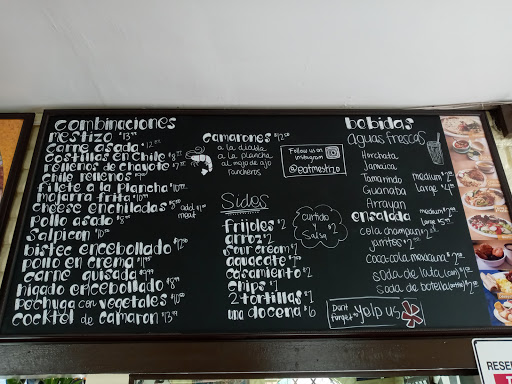 Combinaciones
Mestizo $13.99
Carne asada $12.00
Costillas en chile $8.75
rellenos de chayote $7.50
chile rellenos
filete a la plancha $10.00
mojarra frita $10.00
cheese enchiladas $8.00 add meat $1.00
pollo asado $8.00
Salpicon $10.00
bistec encebollado $12.00
pollo en crema $11.99
carne guisada $9.99
higado encebollado $8.99
pechuga con vegetales $10.00
cocktel de camaron $13.99
Camarones $12.00
a la diabla
a la plancha
al mojo de ajo
rancheros
Follow us on
instagram
@eatmestizo
Sides
frijoles $2
arroz $2
sour cream $1
aguacate $2.00
casamiento $2
chips $1
2 tortillas $1
una docena $6
curtido
y
Salsa $2
Bebidas
aguas frescas
Horchata
Jamaica
Tamarindo medium
Guanaba large
Arrayan
ensalada medium
large
cola champan
jarritos
coca-cola mexicana
soda de lata (can)
soda de botella
Don't
forget
yelp us
RESE